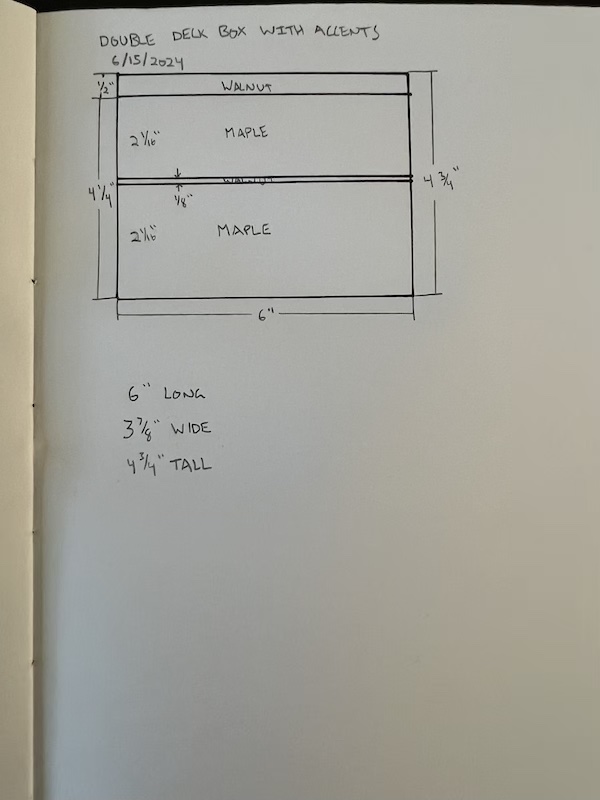 DOUBLE DECK BOX WITH ACCENTS
6/15/2024
1/2"
WALNUT
2 1/16"
MAPLE
WALNUT
4 1/4"
1/8"
4 3/4"
2 1/16"
MAPLE
6"
6" LONG
3 7/8" WIDE
4 3/4" TALL